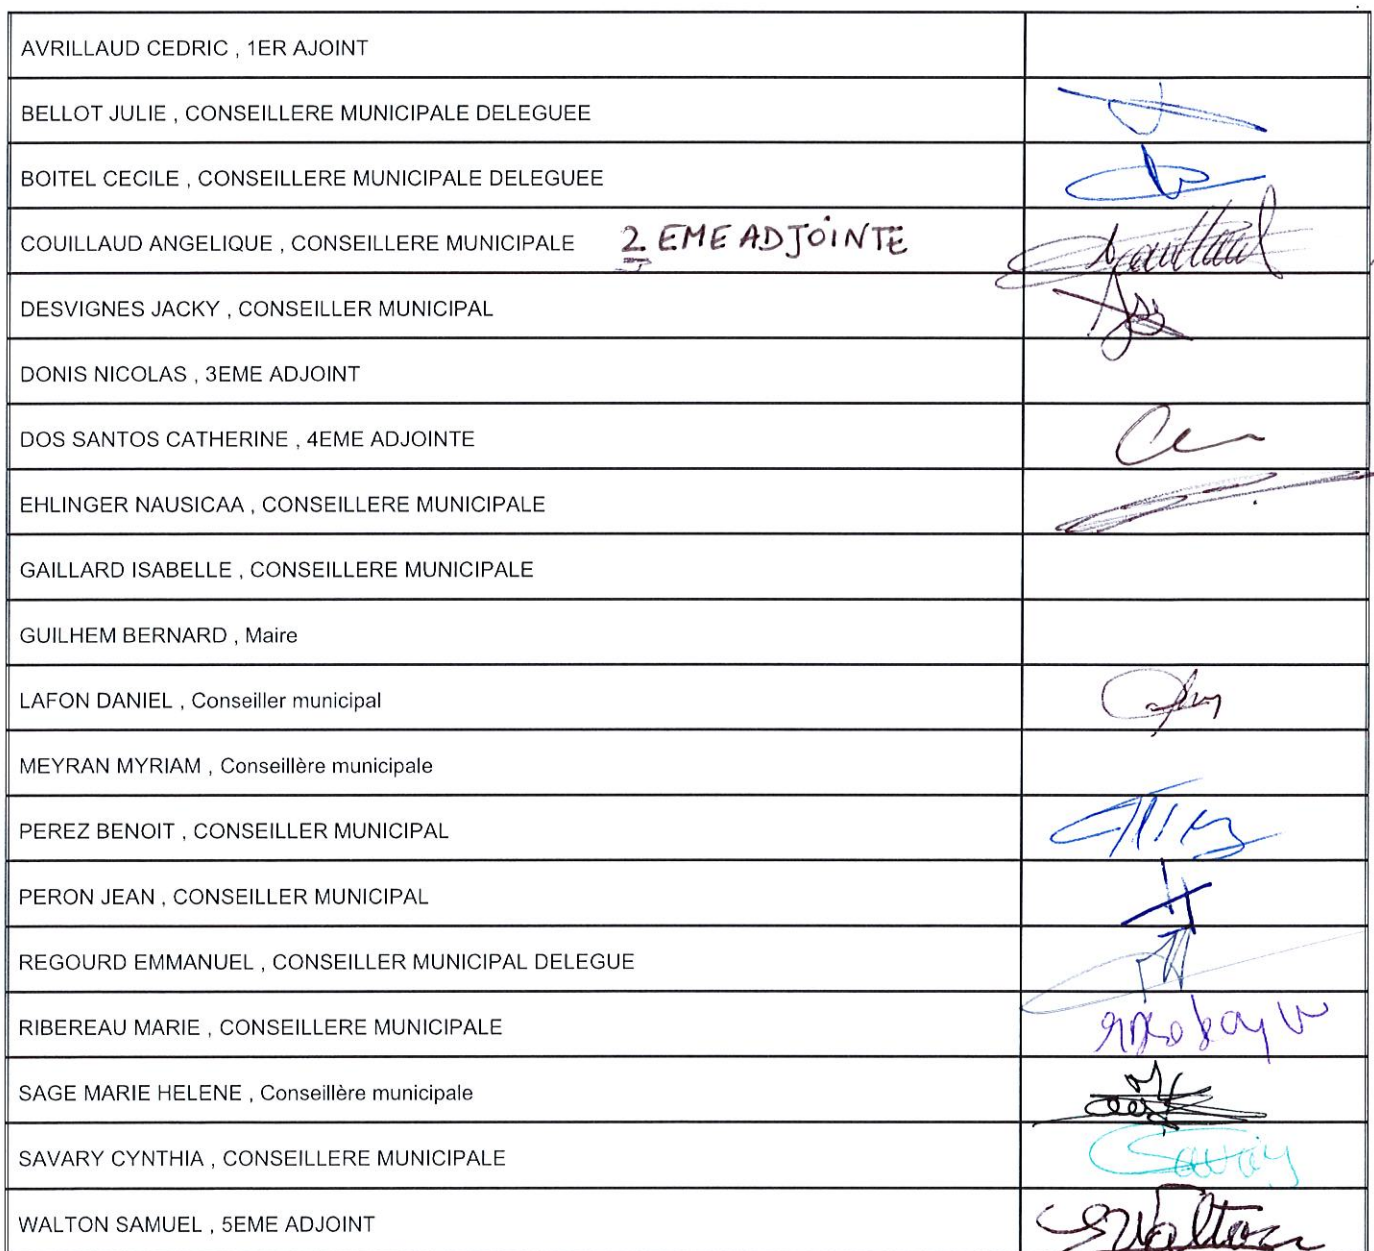 AVRILLAUD CEDRIC , 1ER AJOINT
BELLOT JULIE , CONSEILLERE MUNICIPALE DELEGUEE
BOITEL CECILE , CONSEILLERE MUNICIPALE DELEGUEE
COUILLAUD ANGELIQUE , CONSEILLERE MUNICIPALE 2 EME ADJOINTE
DESVIGNES JACKY , CONSEILLER MUNICIPAL
DONIS NICOLAS , 3EME ADJOINT
DOS SANTOS CATHERINE , 4EME ADJOINTE
EHLINGER NAUSICAA , CONSEILLERE MUNICIPALE
GAILLARD ISABELLE , CONSEILLERE MUNICIPALE
GUILHEM BERNARD , Maire
LAFON DANIEL , Conseiller municipal
MEYRAN MYRIAM , Conseillère municipale
PEREZ BENOIT , CONSEILLER MUNICIPAL
PERON JEAN , CONSEILLER MUNICIPAL
REGOURD EMMANUEL , CONSEILLER MUNICIPAL DELEGUE
RIBEREAU MARIE , CONSEILLERE MUNICIPALE
SAGE MARIE HELENE , Conseillère municipale
SAVARY CYNTHIA , CONSEILLERE MUNICIPALE Savary
WALTON SAMUEL , 5EME ADJOINT SWalton